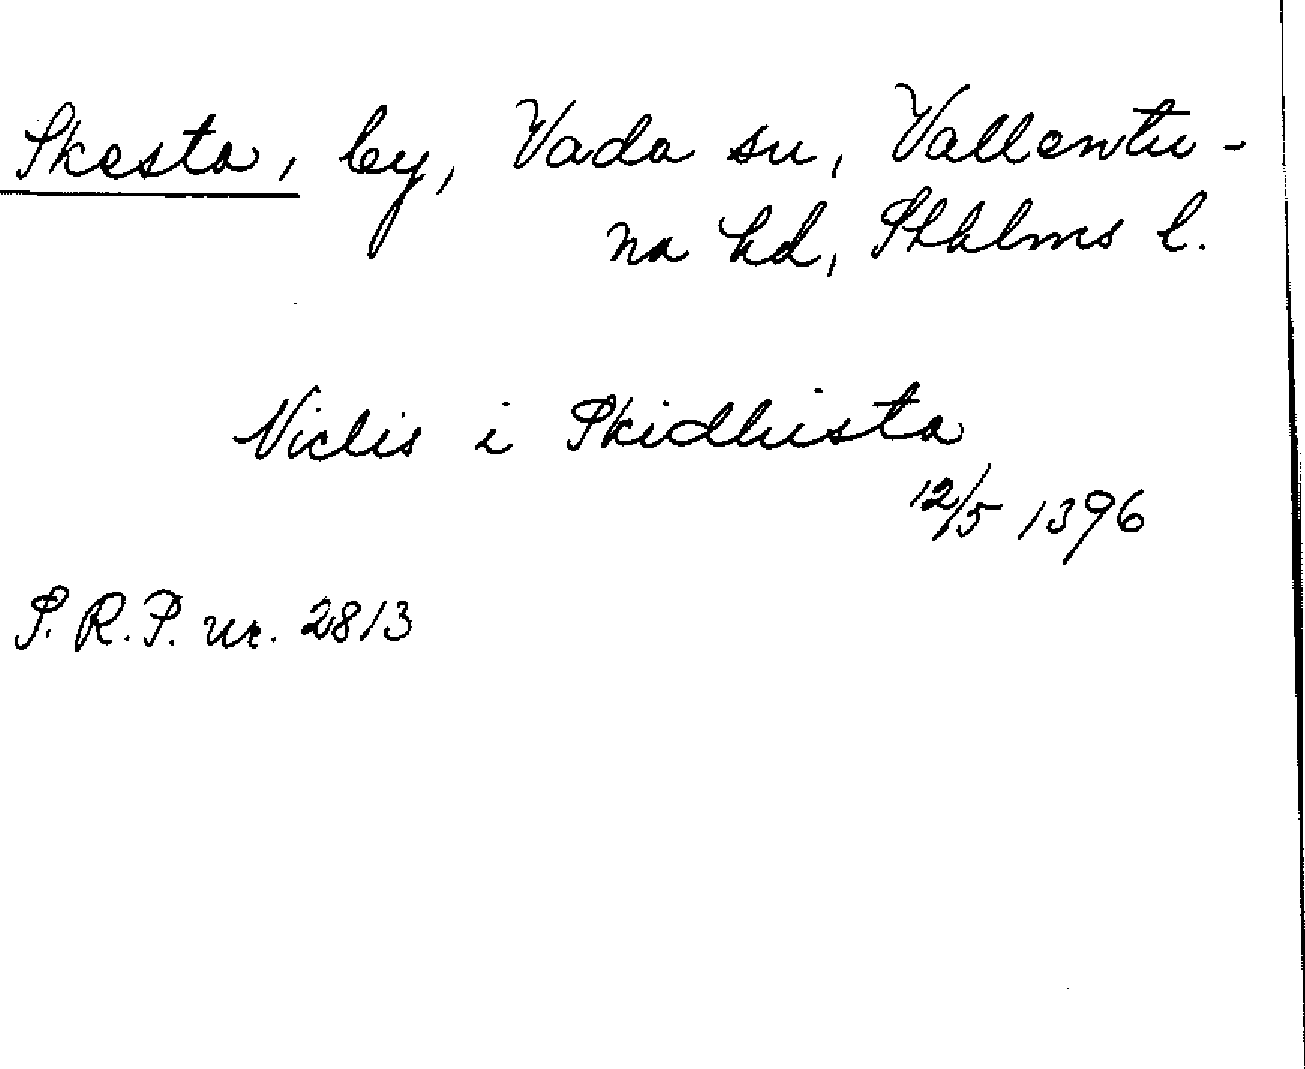 Skesta, by, Vada sn, Vallentu-
na hd, Sthlms l.
Niclis i Skidhista
12/5 1396
S.R.P. nr. 2813